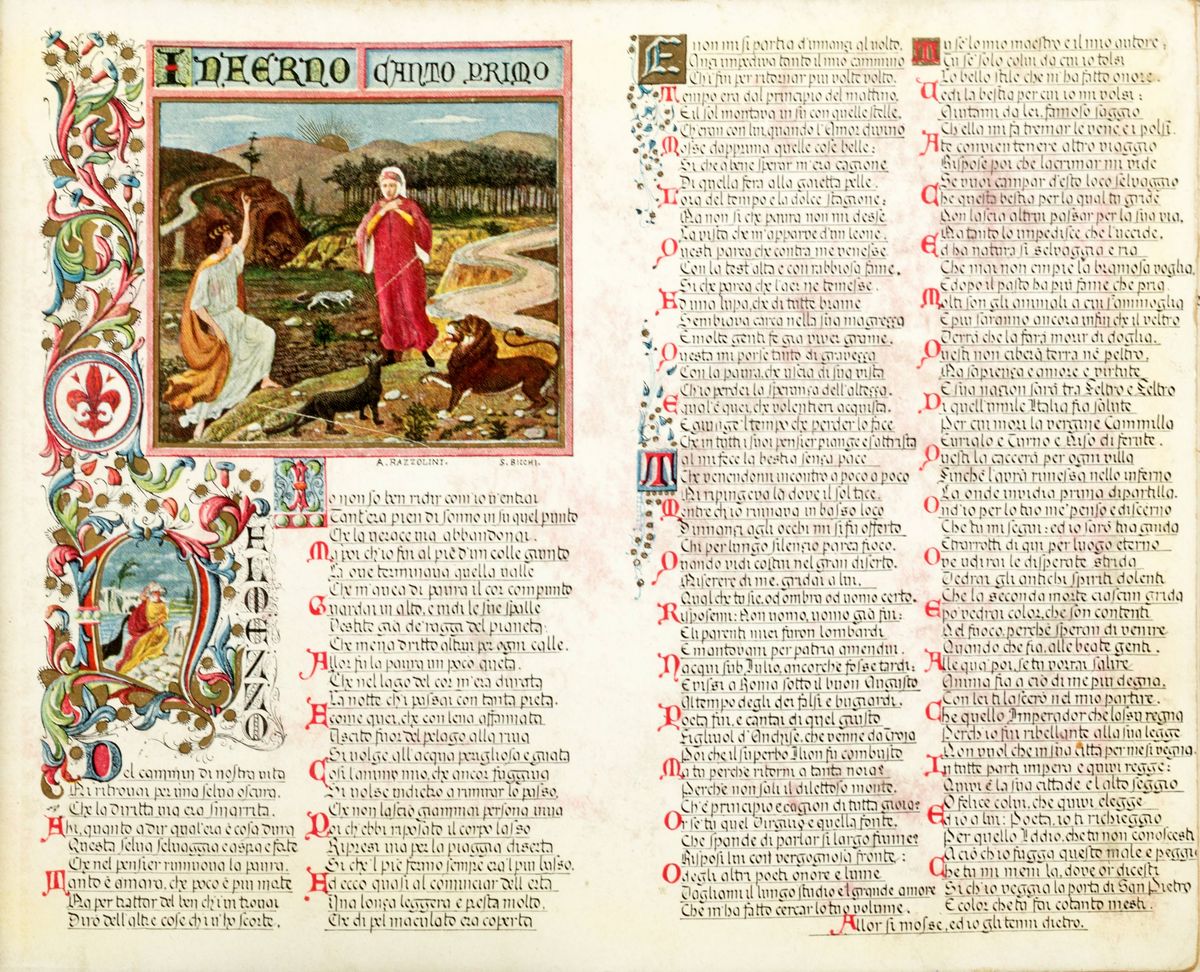 INFERNO CANTO PRIMO
A. RAZZOLINI. S. BICCHI.
NEL MEZZO
Del cammin di nostra vita
Mi ritrovai per una selva oscura,
Che la diritta via era smarrita.
Ahi, quanto a dir qual'era è cosa dura
Questa selva selvaggia e aspra e forte
Che nel pensier rinnuova la paura.
Tanto è amara, che poco è più morte
Ma per trattar del ben ch'i vi trovai
Dirò dell'altre cose ch'i v'ho scorte.
Io non so ben ridir com'io v'entrai
Tant'era pien di sonno in su quel punto
Che la verace via abbandonai.
Ma poi ch'io fui al piè d'un colle giunto
La ove terminava quella valle
Che m'avea di paura il cor compunto
Guardai in alto, e vidi le sue spalle
Vestite già de'raggi del pianeta
Che mena dritto altrui per ogni calle.
Allor fu la paura un poco queta,
Che nel lago del cor m'era durata
La notte ch'i passai con tanta pieta.
E come quei, che con lena affannata
Uscito fuor del pelago alla riva
Si volge all'acqua perigliosa e guata
Così l'animo mio, che ancor fuggiva
Si volse indietro a rimirar lo passo,
Che non lasciò giammai persona viva
Poi ch'ebbi riposato il corpo lasso
Ripresi via per la piaggia diserta
Si che'l piè fermo sempre era'l più basso,
Ed ecco quasi al cominciar dell'erta
Una lonza leggera e presta molto,
Che di pel maculato era coperta
E non mi si partia d'innanzi al volto,
Anzi impediva tanto il mio cammino
Ch'i fui per ritornar più volte volto.
Tempo era dal principio del mattino,
E il sol montava in su con quelle stelle,
Ch'eran con lui, quando l'Amor divino
Mosse dapprima quelle cose belle:
Si che a bene sperar m'era cagione
Di quella fera alla gaietta pelle,
L'ora del tempo e la dolce stagione:
Ma non si che paura non mi desse
La vista che m'apparve d'un leone.
Questi parea che contra me venesse
Con la test'alta e con rabbiosa fame,
Si che parea che l'aer ne temesse.
Ed una lupa, che di tutte brame
Sembiava carca nella sua magrezza
E molte genti fe già viver grame.
Questa mi porse tanto di gravezza
Con la paura, che uscia di sua vista
Ch'io perdei la speranza dell'altezza.
E qual'è quei, che volentieri acquista,
E giunge'l tempo che perder lo face
Che in tutti i suoi pensier piange e s'attrista
Tal mi fece la bestia senza pace
Che venendomi incontro a poco a poco
Mi ripingeva là dove il sol tace.
Mentre ch'io ruinava in basso loco
Dinanzi agli occhi mi si fu offerto
Chi per lungo silenzio parea fioco.
Quando vidi costui nel gran diserto,
Miserere di me, gridai a lui,
Qual che tu sie, od ombra od uomo certo.
Risposemi: Non uomo, uomo già fui:
E li parenti miei furon lombardi
E mantovani per patria amendui.
Nacqui sub Julio, ancorchè fosse tardi:
E vissi a Roma sotto il buon Augusto
Al tempo degli dei falsi e bugiardi.
Poeta fui, e cantai di quel giusto
Figliuol d'Anchise, che venne da Troja
Poi che il superbo Ilion fu combusto
Ma tu perchè ritorni a tanta noia?
Perchè non sali il dilettoso monte,
Ch'è principio e cagion di tutta gioia?
Or se' tu quel Virgilio e quella fonte,
Che spande di parlar si largo fiume?
Risposi lui con vergognosa fronte:
O degli altri poeti onore e lume
Vagliami il lungo studio e'l grande amore
Che m'ha fatto cercar lo tuo volume.
Tu se' lo mio maestro e il mio autore;
Tu se' solo colui da cui io tolsi
Lo bello stile che m'ha fatto onore.
Vedi la bestia per cui io mi volsi:
Aiutami da lei, famoso saggio
Ch'ella mi fa tremar le vene e i polsi.
A te convien tenere altro viaggio
Rispose poi che lacrimar mi vide
Se vuoi campar d'esto loco selvaggio
Che questa bestia per la qual tu gride
Non lascia altrui passar per la sua via,
Ma tanto lo impedisce che l'uccide,
Ed ha natura si selvaggia e ria
Che mai non empie la bramosa voglia
E dopo il pasto ha più fame che pria.
Molti son gli animali a cui s'ammoglia
E più saranno ancora infin che il veltro
Verrà che la farà morir di doglia.
Questi non ciberà terra nè peltro,
Ma sapienza e amore e virtute
E sua nazion sarà tra Feltro e Feltro
Di quell'umile Italia fia salute
Per cui morì la vergine Cammilla
Eurialo e Turno e Niso di ferute.
Questi la caccerà per ogni villa
Finchè l'avrà rimessa nello inferno
La onde invidia prima dipartilla.
Ond'io per lo tuo me' penso e discerno
Che tu mi segui: ed io sarò tua guida
E trarrotti di qui per luogo eterno
Ove udirai le disperate strida
Vedrai gli antichi spiriti dolenti
Che la seconda morte ciascun grida
E po' vedrai color, che son contenti
Nel fuoco, perchè speran di venire
Quando che fia, alle beate genti.
Alle qua' poi, se tu vorrai salire
Anima fia a ciò di me più degna,
Con lei ti lascerò nel mio partire.
Che quello Imperador che lassu regna
Perch'io fui ribellante alla sua legge
Non vuol che in sua città per me si vegna.
In tutte parti impera e quivi regge:
Quivi è la sua cittade e l'alto seggio
O felice colui, che quivi elegge
Ed io a lui: Poeta, io ti richieggio
Per quello Iddio, che tu non conoscesti
Acciò ch'io fugga questo male e peggi
Che tu mi meni là, dove or dicesti
Si ch'io veggia la porta di San Pietro
E color che tu fai cotanto mesti.
Allor si mosse, ed io gli tenni dietro.